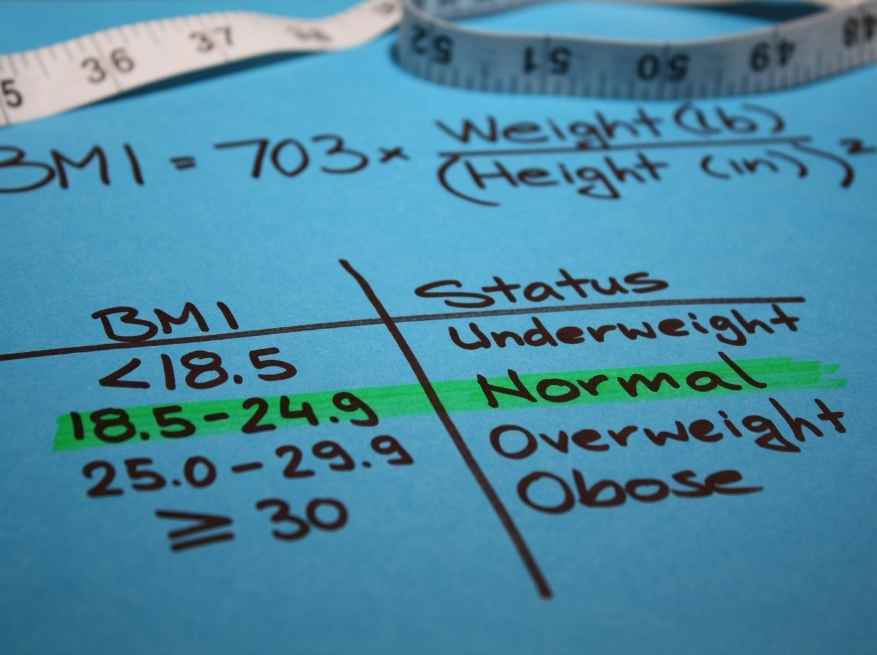 5 36 37 38
52 51 50 49 48
BMI = 703 × Weight (lb)
(Height (in))²
BMI Status
<18.5 Underweight
18.5-24.9 Normal
25.0-29.9 Overweight
≥ 30 Obose